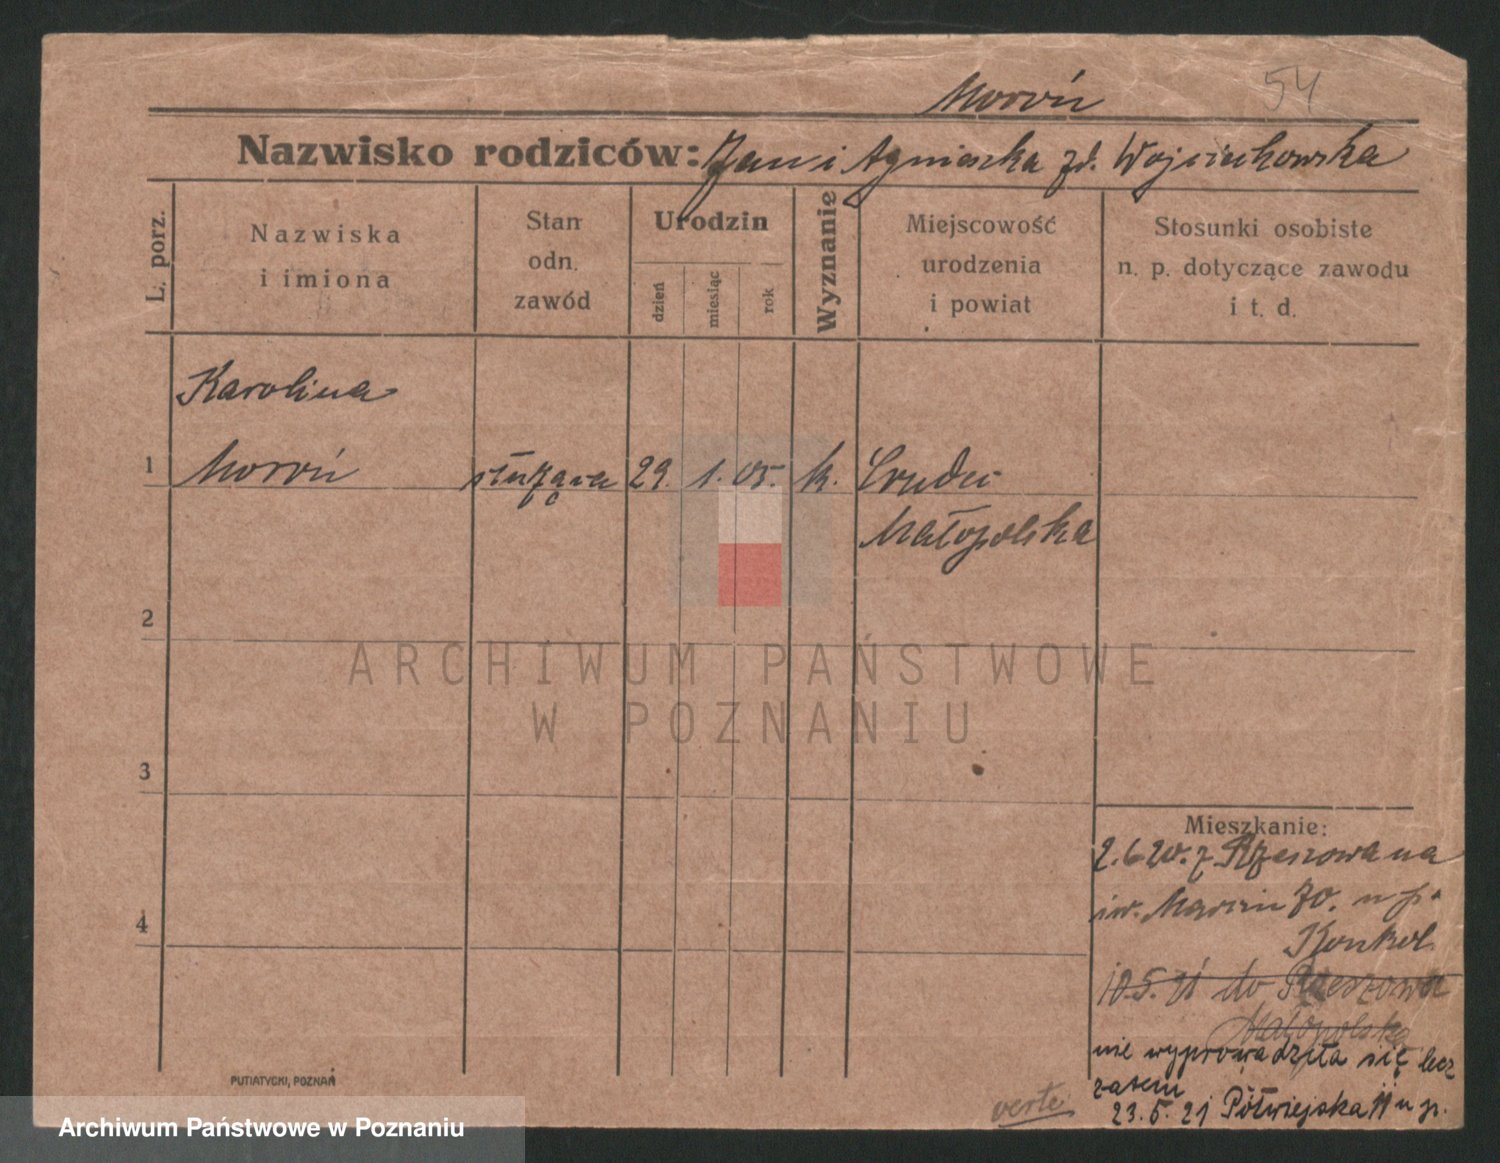 Moroń
54
Nazwisko rodziców: Jan i Agnieszka zd. Wojciechowska
L. porz.
Nazwiska
i imiona
Stan
odn.
zawód
Urodzin
dzień
miesiąc
rok
Wyznanie
Miejscowość
urodzenia
i powiat
Stosunki osobiste
n. p. dotyczące zawodu
i t. d.
Karolina
1 Moroń służąca 29. 1. 05. k.
Małopolska
2
ARCHIWUM PAŃSTWOWE
W POZNANIU
3
Mieszkanie:
2.6.20. z Rzeszowa na
św. Marcin 70. u p.
4
Konkol.
10.5.21 do Rzeszowa
Małopolska
nie wyprowadziła się lecz
zatem
23.5.21 Półwiejska 11 u p.
verte
PUTIATYCKI, POZNAŃ
Archiwum Państwowe w Poznaniu